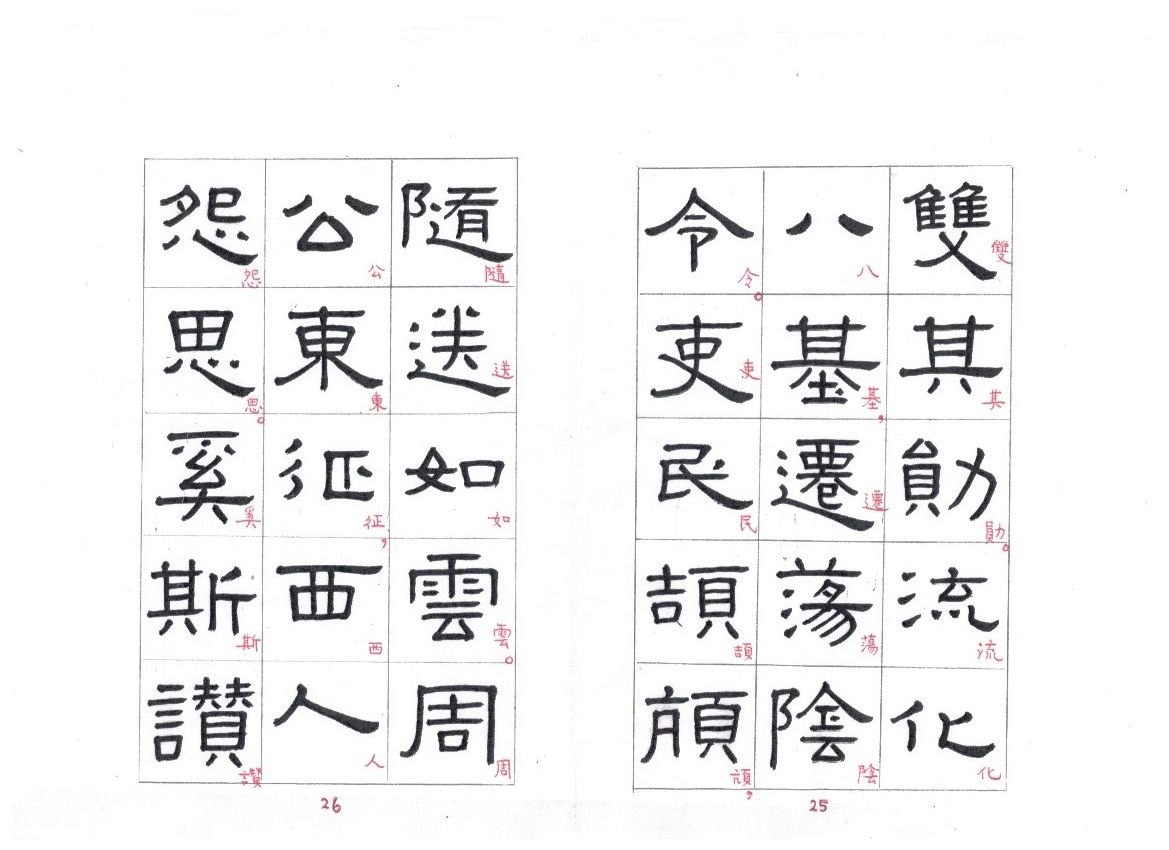 雙其勛流化
雙其勛。流化
八基遷蕩陰
八基,遷蕩陰
令吏民頡頏
令。吏民頡頏,
25
隨送如雲周
隨送如雲。周
公東征西人
公東征,西人
怨思奚斯讚
怨思。奚斯讚
26